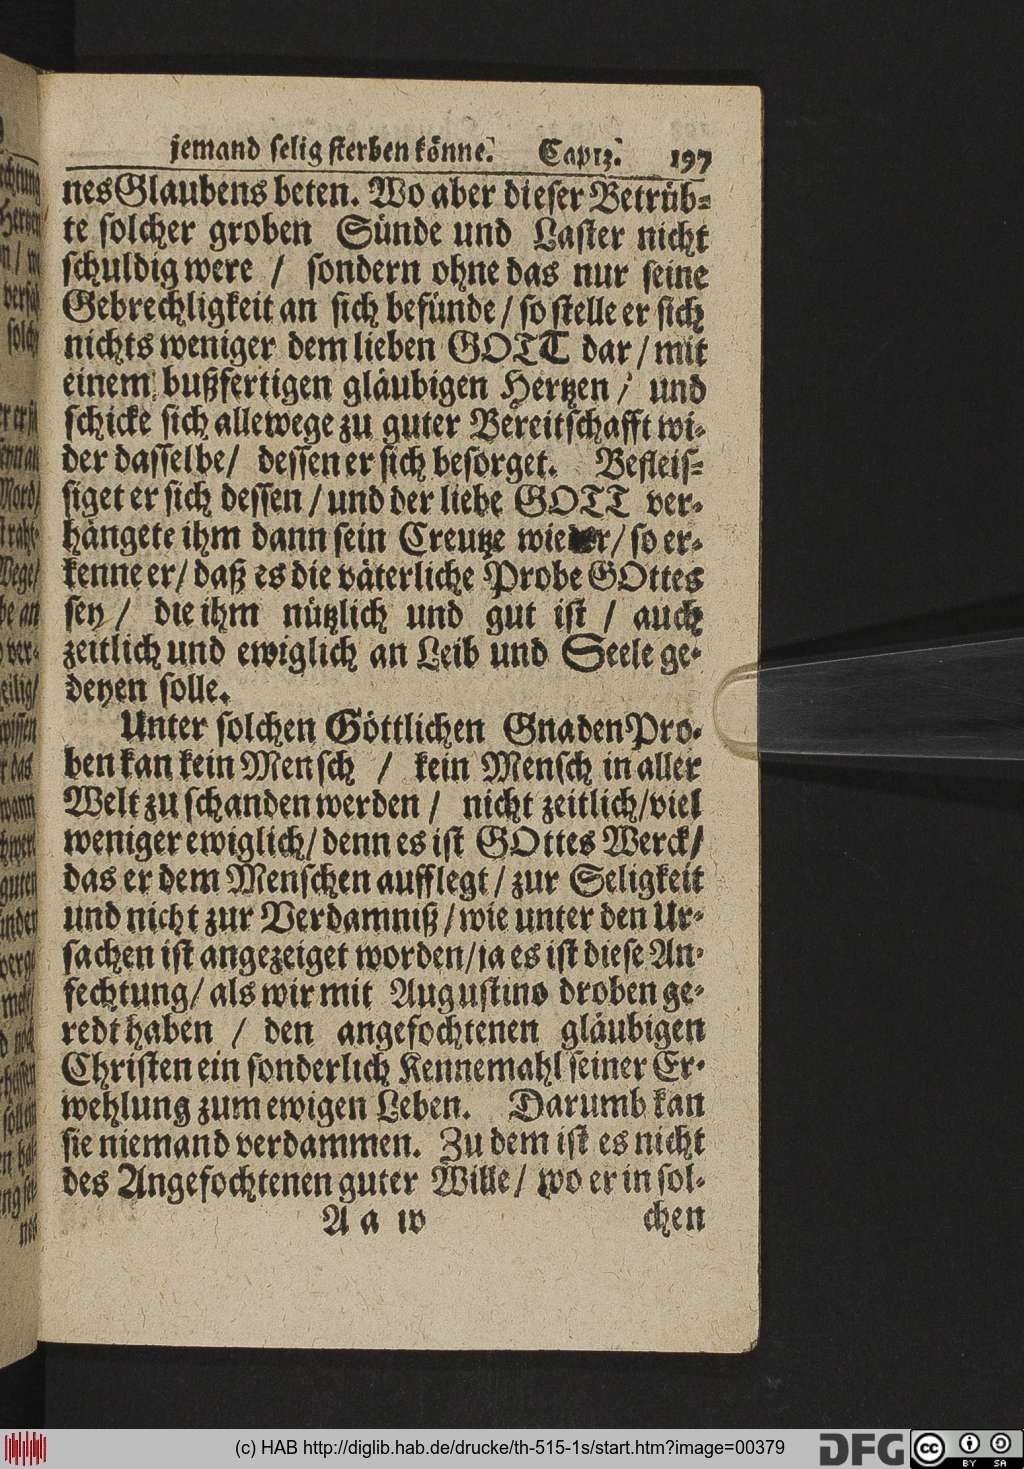 jemand selig sterben könne. Cap 13. 197
nes Glaubens beten. Wo aber dieser Betrüb-
te solcher groben Sünde und Laster nicht
schuldig were / sondern ohne das nur seine
Gebrechligkeit an sich befünde / so stelle er sich
nichts weniger dem lieben GOTT dar / mit
einem bußfertigen gläubigen Hertzen / und
schicke sich allewege zu guter Bereitschafft wi-
der dasselbe / dessen er sich besorget. Befleis-
siget er sich dessen / und der liebe GOTT ver-
hängete ihm dann sein Creutze wieder / so er-
kenne er / daß es die väterliche Probe GOttes
sey / die ihm nützlich und gut ist / auch
zeitlich und ewiglich an Leib und Seele ge-
deyen solle.
Unter solchen Göttlichen Gnaden Pro-
ben kan kein Mensch / kein Mensch in aller
Welt zu schanden werden / nicht zeitlich / viel
weniger ewiglich / denn es ist GOttes Werck /
das er dem Menschen aufflegt / zur Seligkeit
und nicht zur Verdamniß / wie unter den Ur-
sachen ist angezeiget worden / ja es ist diese An-
fechtung / als wir mit Augustino droben ge-
redt haben / den angefochtenen gläubigen
Christen ein sonderlich Kennemahl seiner Er-
wehlung zum ewigen Leben. Darumb kan
sie niemand verdammen. Zu dem ist es nicht
des Angefochtenen guter Wille / wo er in sol-
A a w chen
(c) HAB http://diglib.hab.de/drucke/th-515-1s/start.htm?image=00379
DFG
cc BY SA